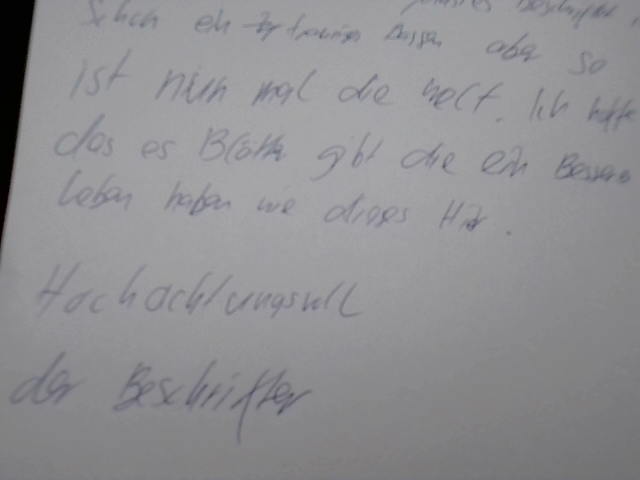 Beschriftet
Schon ein trauriges Dassen aber so
ist nun mal die welt. Ich hoffe
das es Blätter gibt die ein Besseres
Leben haben wie dieses Hir.
Hochachtungsvoll
der Beschrifter